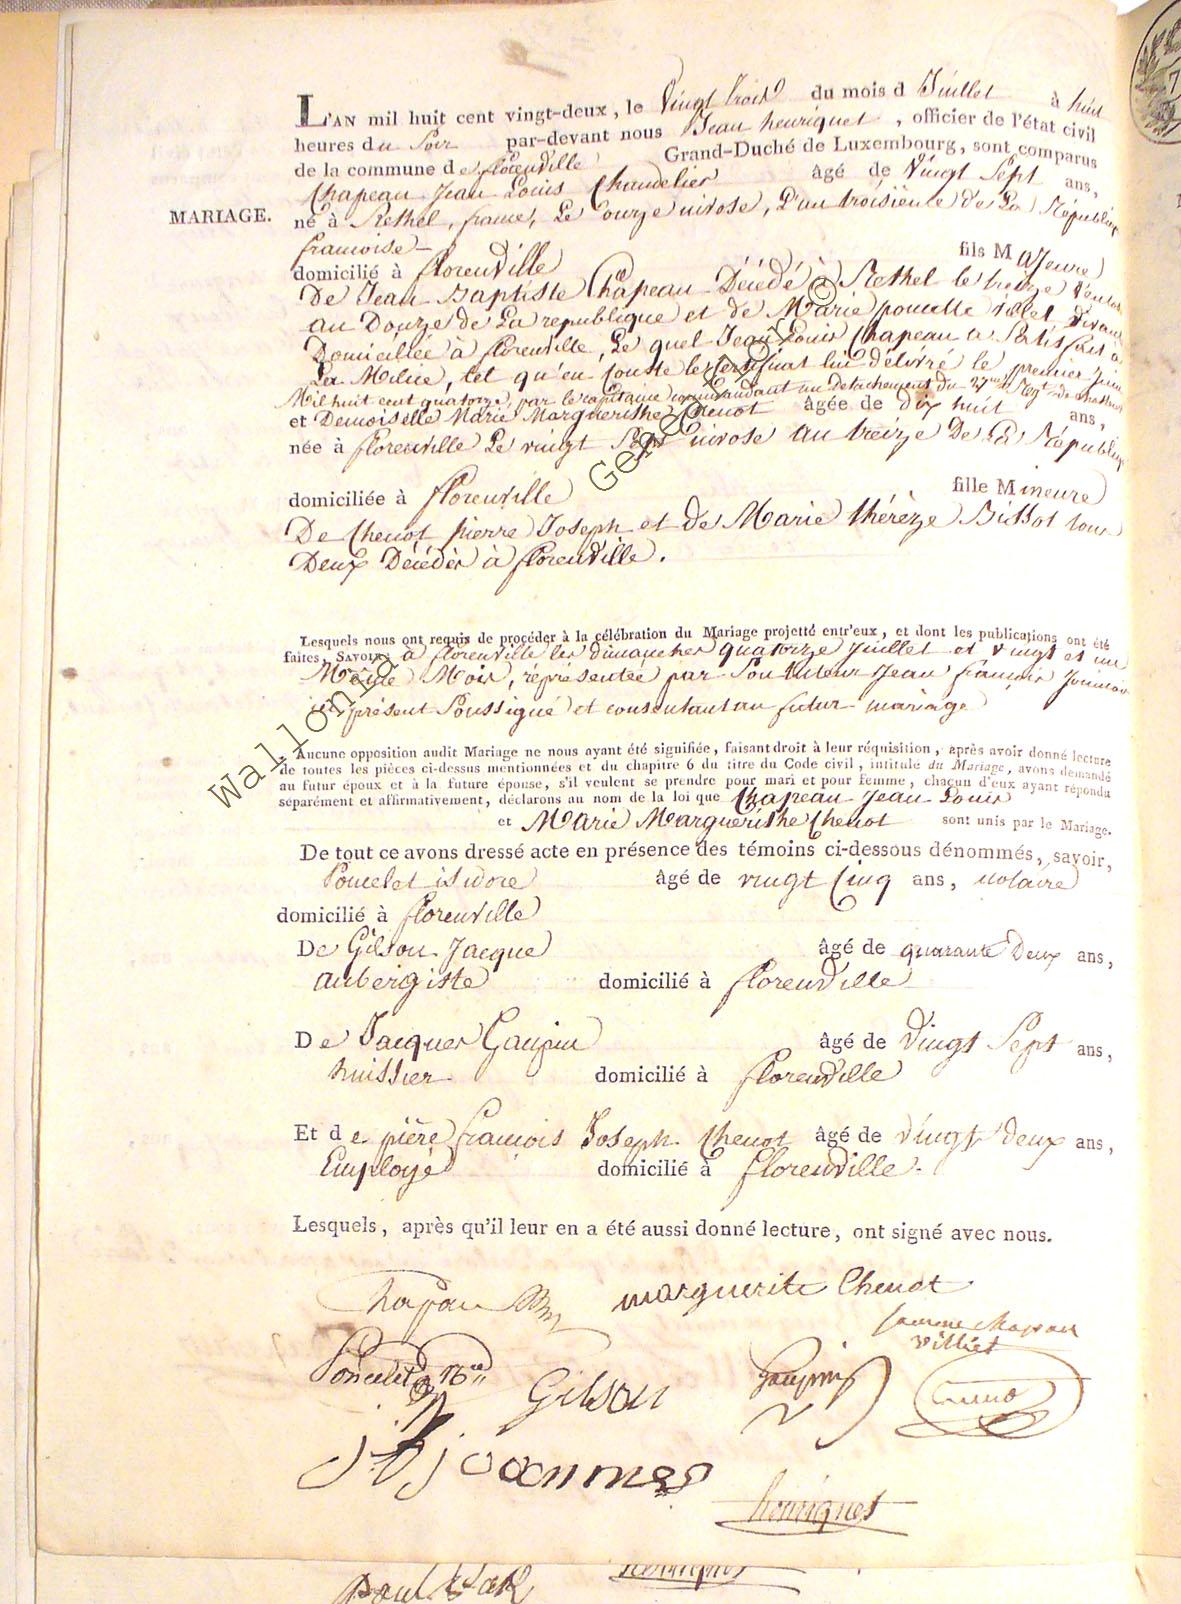 L'AN mil huit cent vingt-deux, le vingt trois du mois d Juillet à huit
heures du Soir par-devant nous Jean henriquet, officier de l'état civil
de la commune de florenville Grand-Duché de Luxembourg, sont comparus
Chapeau Jean Louis Chandelier âgé de Vingt Sept ans,
MARIAGE.
né à Rethel, france, Le onze nivose, L'an troisième de La Républiq
francoise
domicilié à florenville fils Majeure
De Jean Baptiste Chapeau Décédé à Rethel le treize Ventos
au Douze de La republique et de Marie poncette vilet Vivant
Domiciliée à florenville, Le quel Jean Louis Chapeau a Satisfait à
La Milice, tel qu'en conste le certificat lui délivré le premier Juin
Mil huit cent quatorze, par le capitaine commandant un detachement du 27me Regt de Chasseur
et Demoiselle Marie Marguerithe Chenot âgée de dix huit ans,
née à florenville Le vingt Sept nivose au treize De La Républiq
domiciliée à florenville fille Mineure
De Chenot pierre Joseph et de Marie thérèze Bissot tous
Deux Décédés à florenville.
Lesquels nous ont requis de procéder à la célébration du Mariage projetté entr'eux, et dont les publications ont été
faites, SAVOIR: à florenville les dimanches quatorze Juillet et vingt et un
Même Mois, réprésentée par Son tuteur Jean francois
ici présent Soussigné et consentant au futur mariage
Aucune opposition audit Mariage ne nous ayant été signifiée, faisant droit à leur réquisition, après avoir donné lecture
de toutes les pièces ci-dessus mentionnées et du chapitre 6 du titre du Code civil, intitulé du Mariage, avons demandé
au futur époux et à la future épouse, s'il veulent se prendre pour mari et pour femme, chacun d'eux ayant répondu
séparément et affirmativement, déclarons au nom de la loi que Chapeau Jean Louis
et Marie Marguerithe Chenot sont unis par le Mariage.
De tout ce avons dressé acte en présence des témoins ci-dessous dénommés, savoir,
Poncelet isidore âgé de vingt Cinq ans, notaire
domicilié à florenville
De Gilson Jacque âgé de quarante Deux ans,
aubergiste domicilié à florenville
De Jacques Gaupin âgé de Vingt Sept ans,
huissier domicilié à florenville
Et de pière francois Joseph Chenot âgé de vingt deux ans,
Employé domicilié à florenville.
Lesquels, après qu'il leur en a été aussi donné lecture, ont signé avec nous.
Chapau marguerite Chenot
villiet
Poncelet Gilson Gaupin
joannes
henriquet
Wallonia © GeneaFlor